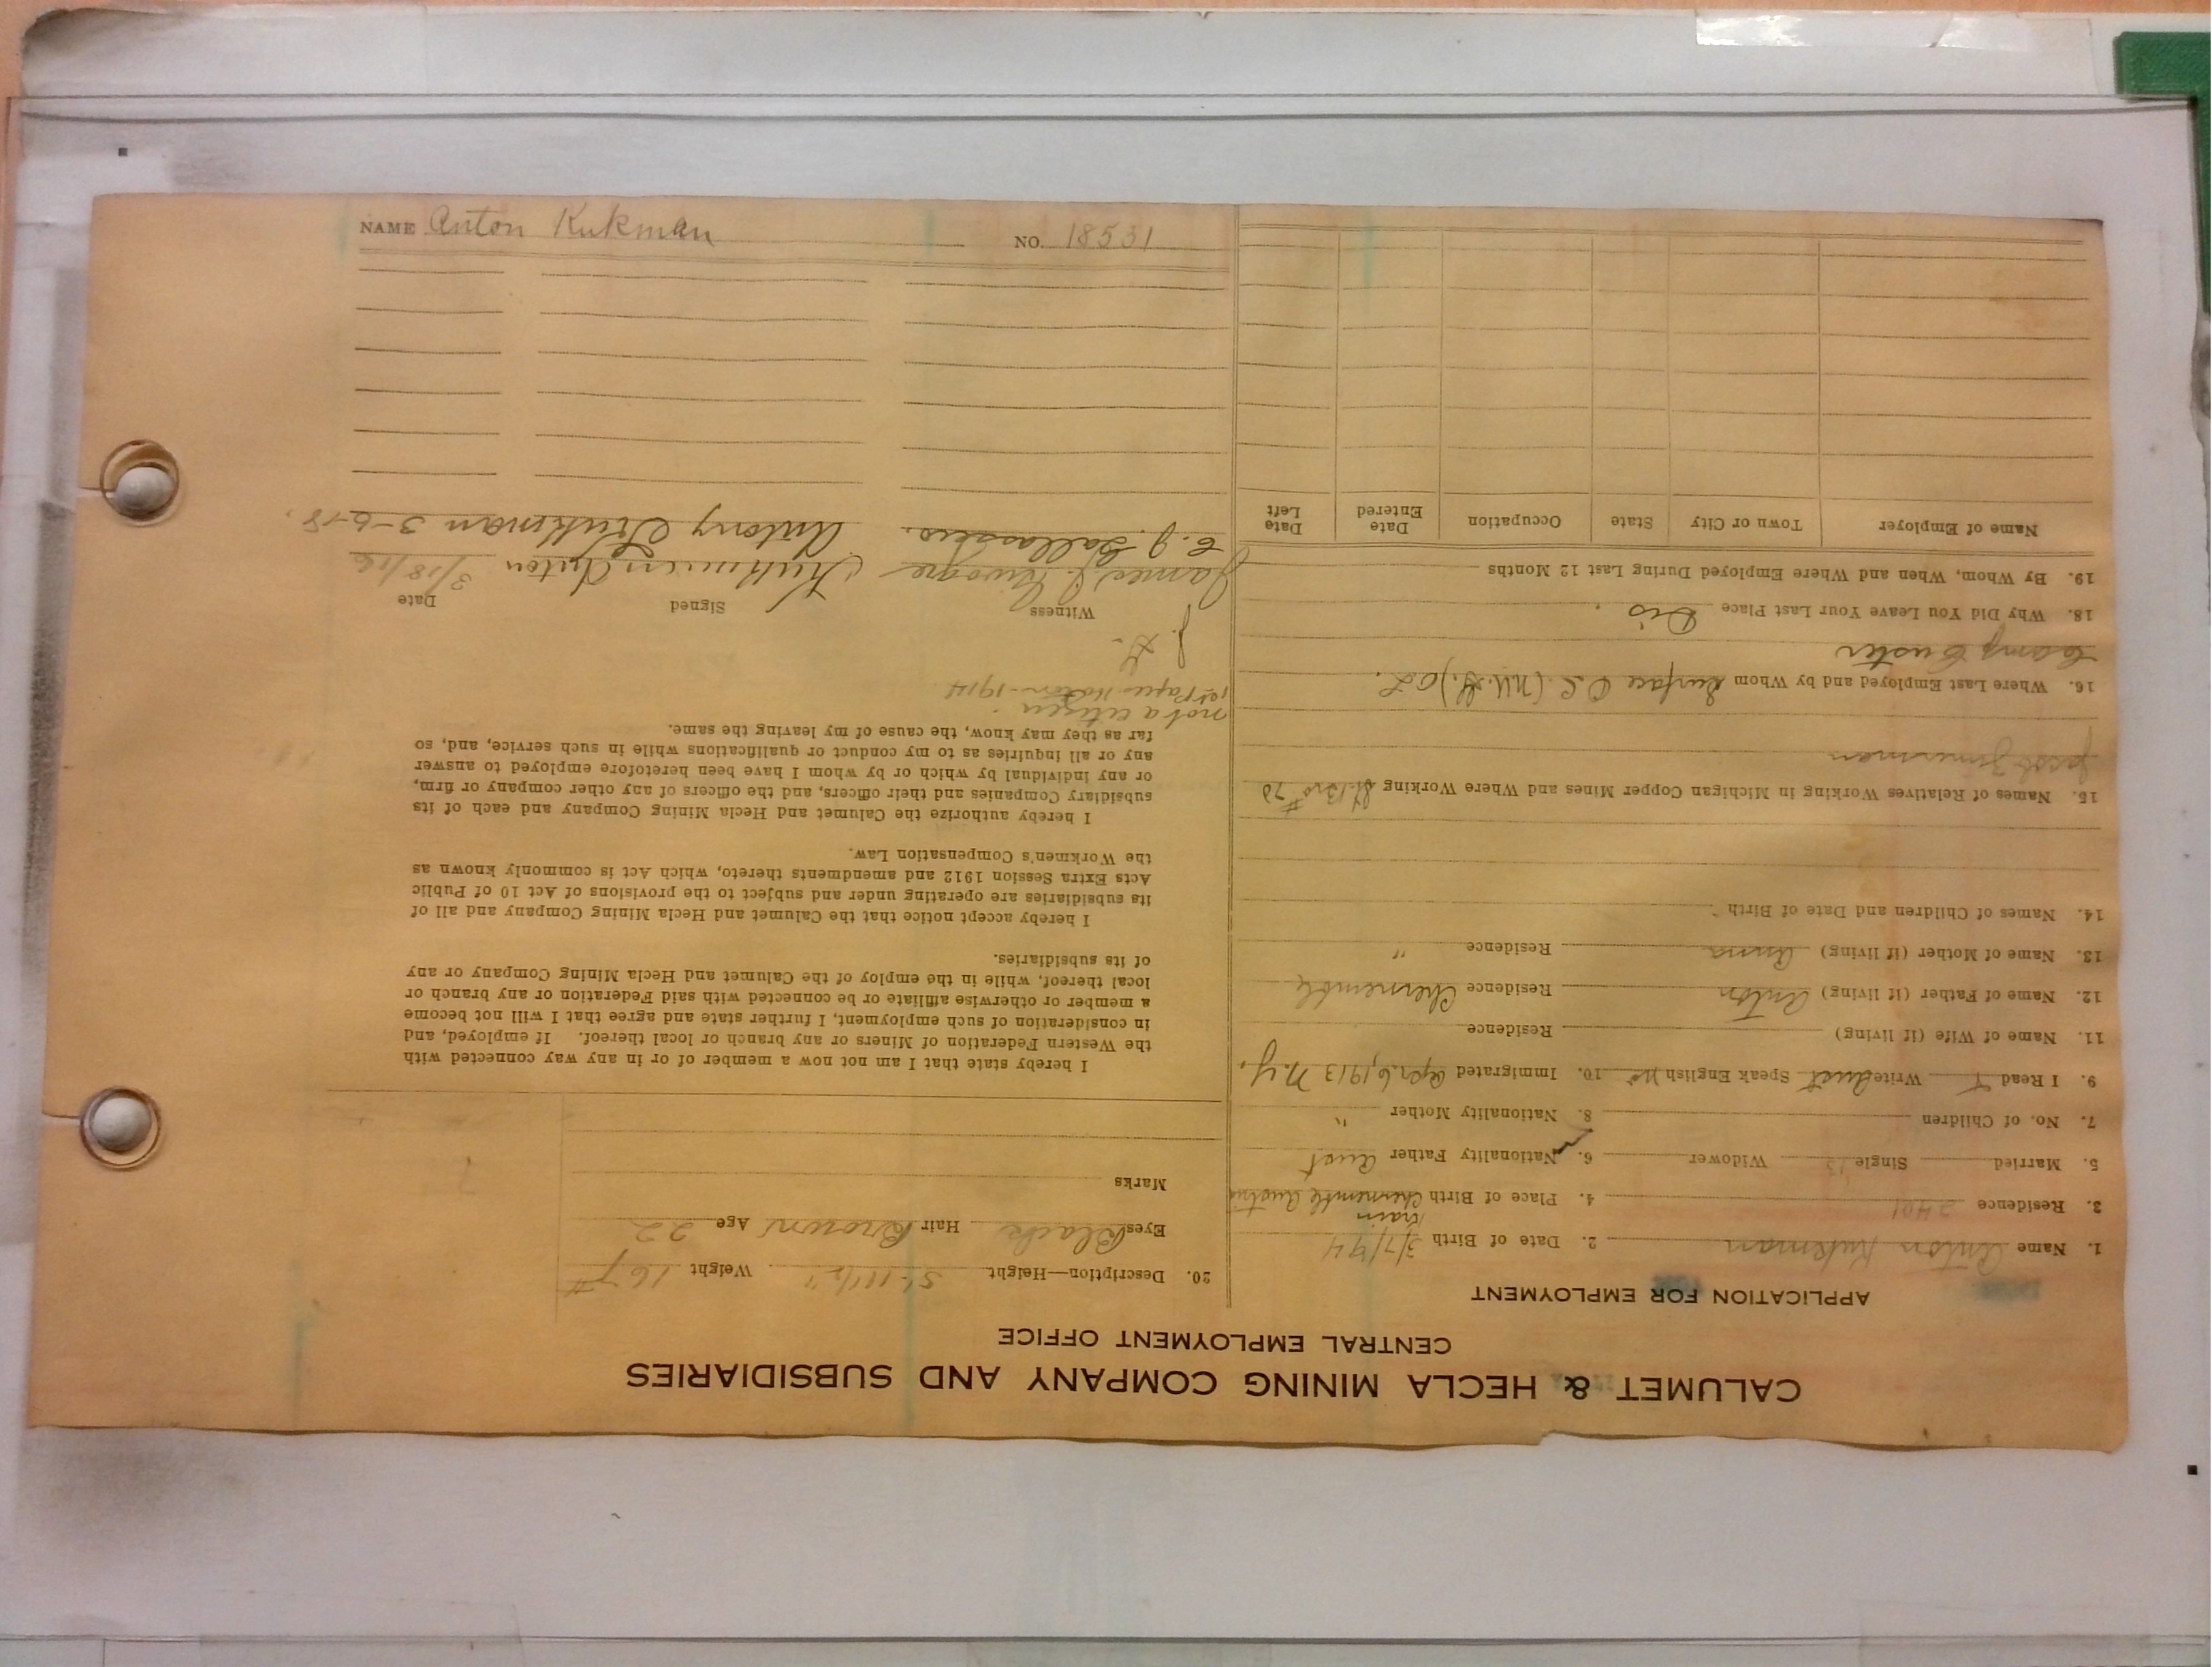 CALUMET & HECLA MINING COMPANY AND SUBSIDIARIES
CENTRAL EMPLOYMENT OFFICE
APPLICATION FOR EMPLOYMENT
1. Name Anton Kukman 2. Date of Birth 3/7/94
3. Residence 2401 4. Place of Birth Chernemble Austria
Krain
5. Married Single Widower 6. Nationality Father Aust
7. No. of Children 8. Nationality Mother "
9. I Read Write Aust Speak English No 10. Immigrated Apr. 6, 1913 N.Y.
11. Name of Wife (if living) Residence
12. Name of Father (if living) Anton Residence Chernemble
13. Name of Mother (if living) Anna Residence "
14. Names of Children and Date of Birth
15. Names of Relatives Working in Michigan Copper Mines and Where Working St. Bro #70
Jacob Zimmerman
16. Where Last Employed and by Whom Surface O.L. (N.K.G.) O.L.
Camp Custer
18. Why Did You Leave Your Last Place Dis.
19. By Whom, When and Where Employed During Last 12 Months
Name of Employer Town or City State Occupation Date Entered Date Left
20. Description—Height 5'-11 1/2" Weight 167#
Eyes Black Hair Brown Age 22
Marks
I hereby state that I am not now a member of or in any way connected with
the Western Federation of Miners or any branch or local thereof. If employed, and
in consideration of such employment, I further state and agree that I will not become
a member or otherwise affiliate or be connected with said Federation or any branch or
local thereof, while in the employ of the Calumet and Hecla Mining Company or any
of its subsidiaries.
I hereby accept notice that the Calumet and Hecla Mining Company and all of
its subsidiaries are operating under and subject to the provisions of Act 10 of Public
Acts Extra Session 1912 and amendments thereto, which Act is commonly known as
the Workmen's Compensation Law.
I hereby authorize the Calumet and Hecla Mining Company and each of its
subsidiary Companies and their officers, and the officers of any other company or firm,
or any individual by which or by whom I have been heretofore employed to answer
any or all inquiries as to my conduct or qualifications while in such service, and, so
far as they may know, the cause of my leaving the same.
not a citizen
1st Paper 1914
J. G.
Witness Signed Date
James Kukman Anton 3/18/16
E. J. Antony Kukman 3-6-18.
NAME Anton Kukman NO. 18531